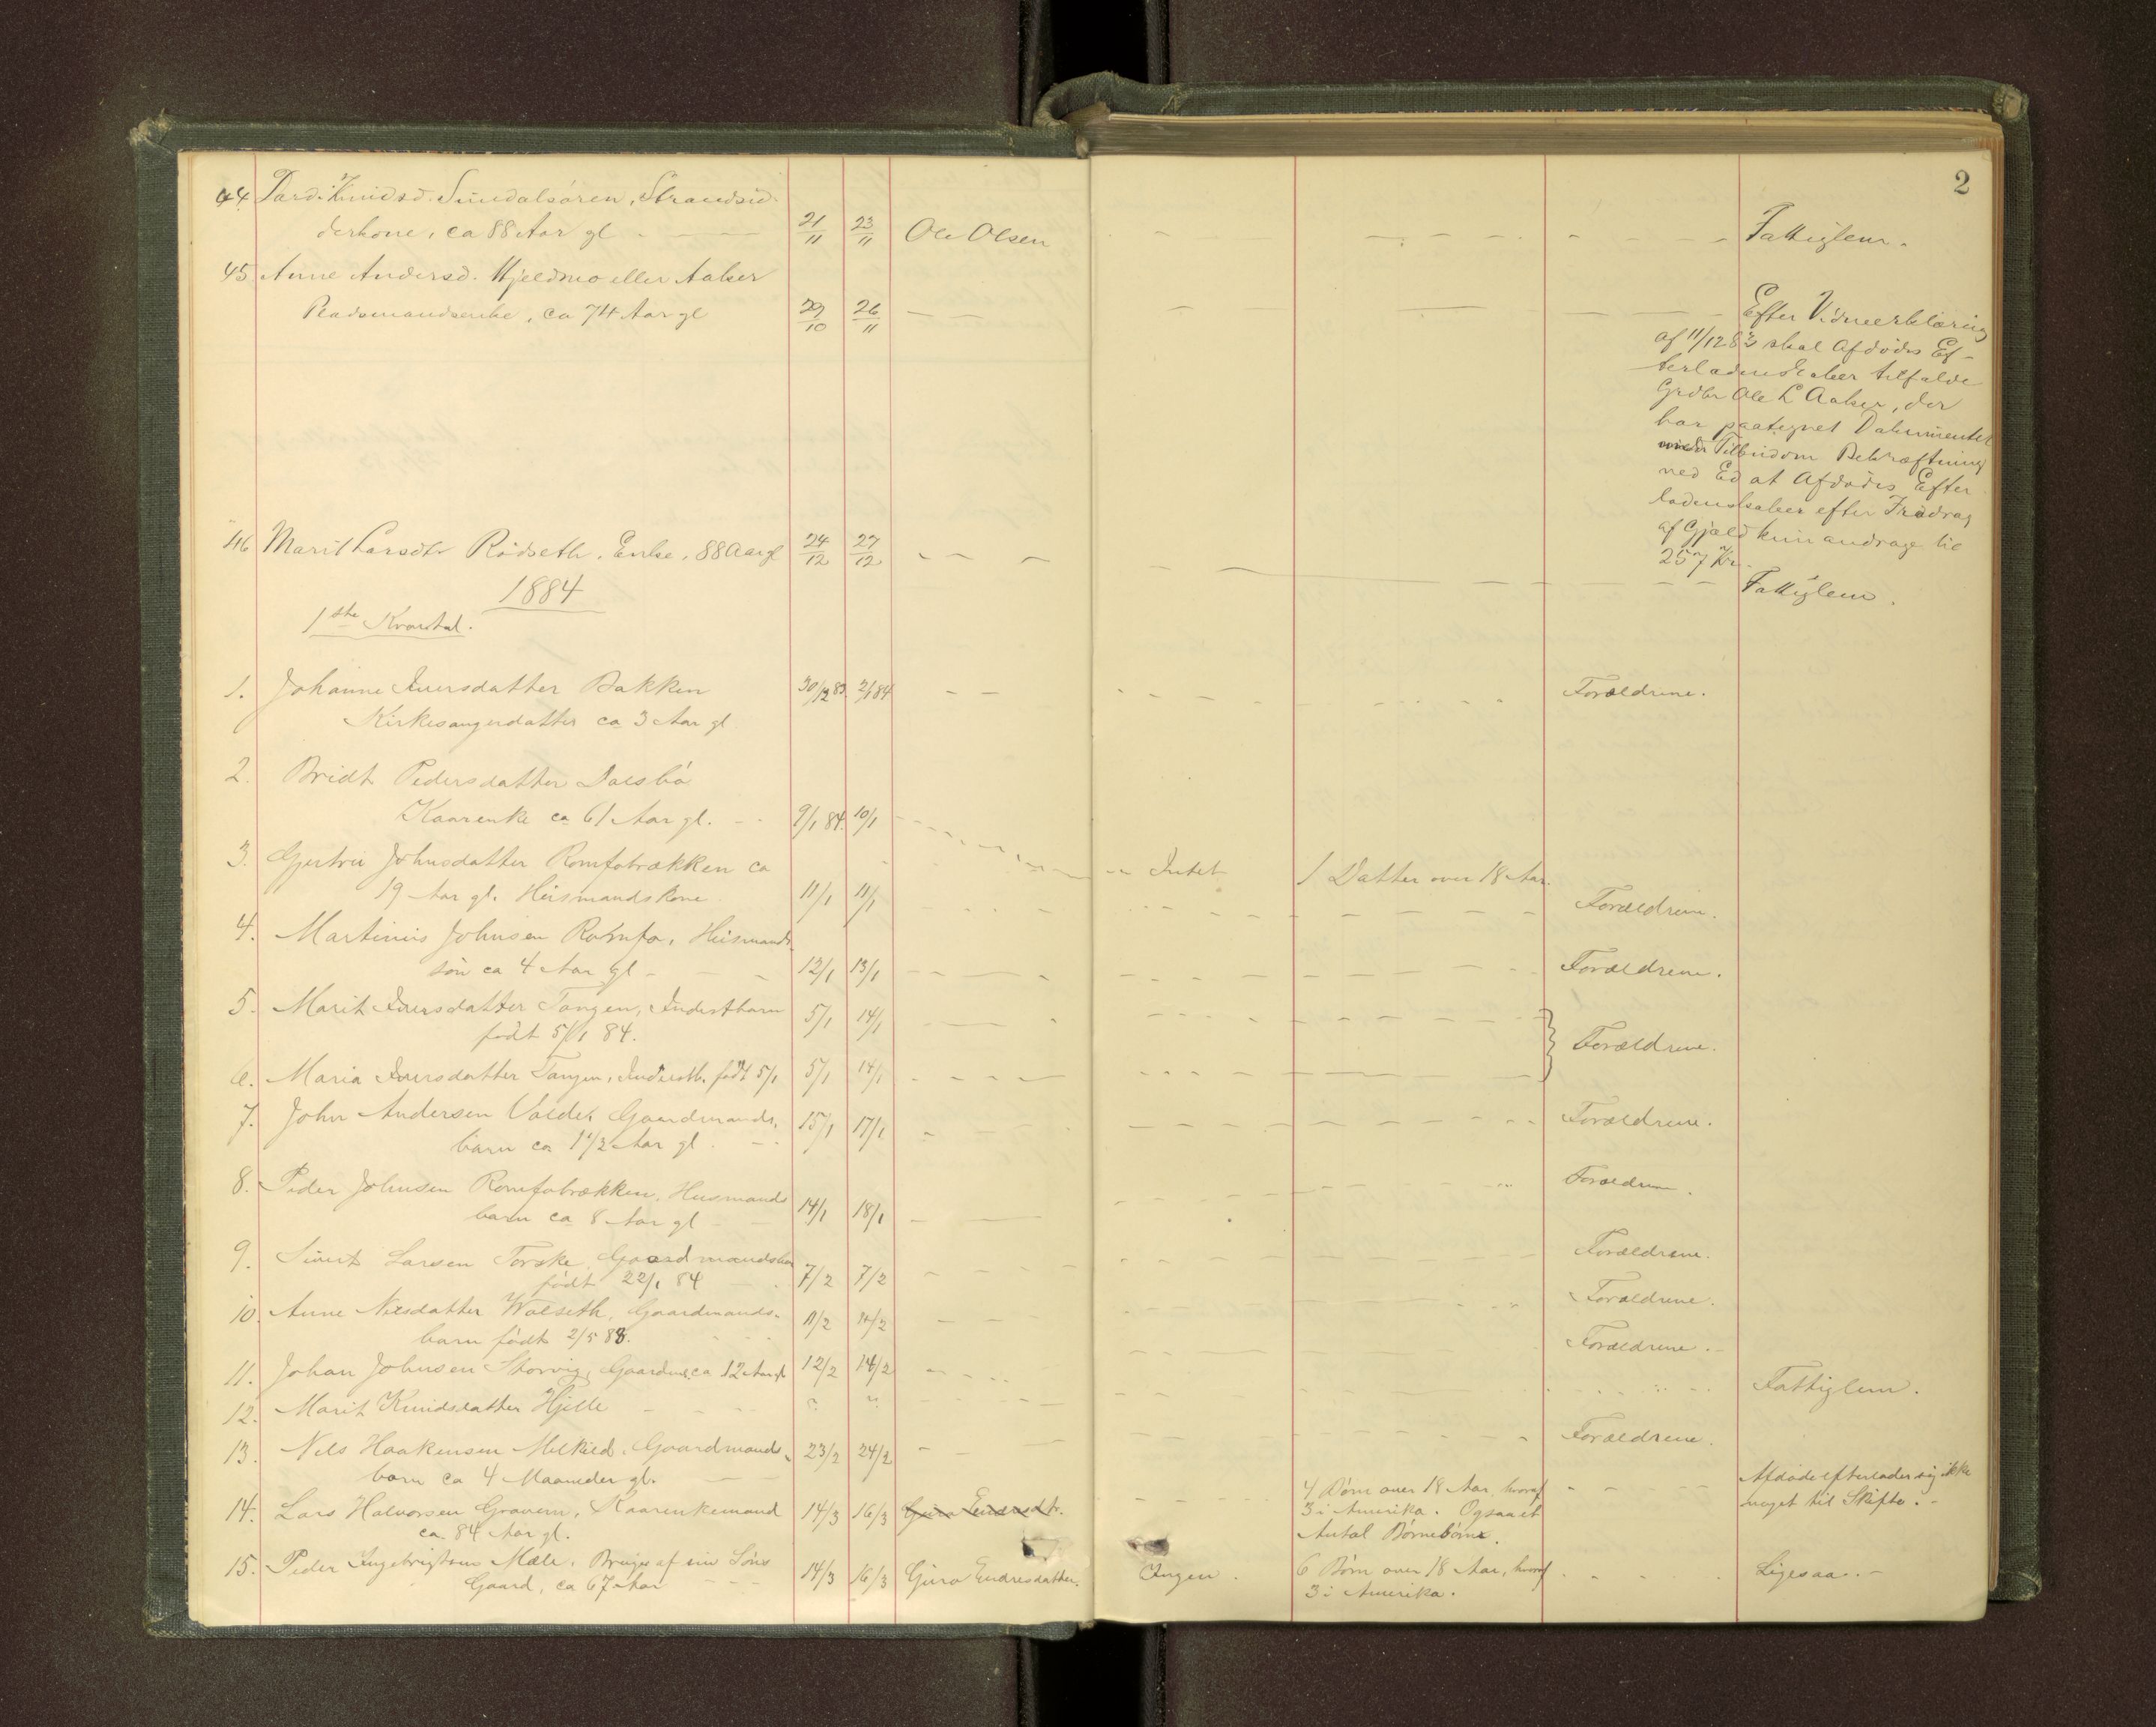 2
44. Knudsd. Sundalsören, Strandsid-
derkone, ca 88 Aar gl 21/11 23/11 Ole Olsen Fattiglem.
45 Anne Andersd. Hjeldmo eller Aalser
Pladsmandsenke, ca 74 Aar gl 29/10 26/11
Efter Vidneerklæring
af 11/12 83 skal Afdödes Ef-
terladenskaber tilfalde
Grdbr Ole L Aalser, der
har paategnet Dokumentet
under Tilbudom Bekræftning
med Ed at Afdödes Efter
ladenskaber efter Fradrag
af Gjæld kun andrage til
257 Kr.
46 Marit Larsdtr Rödseth, Enke, 88 Aar gl 24/12 27/12 Fattiglem.
1884
1ste Kvartal.
1. Johanne Iversdatter Bakken 30/12 83. 2/1 84 Forældrene.
Kirkesangerdatter ca 3 Aar gl
2. Bridt Pedersdatter Dalsbö
Kaarenke ca 61 Aar gl. 9/1 84. 10/1 Intet 1 Datter over 18 Aar.
3. Gjertru Johnsdatter Romfobrækken ca
19 Aar gl. Husmandskone 11/1 11/1 Forældrene.
4. Martinus Johnsen Romfo, Husmands-
sön ca 4 Aar gl 12/1 13/1 Forældrene.
5. Marit Iversdatter Tangen, Inderstbarn 5/1 14/1
födt 5/1 84. Forældrene.
6. Maria Iversdatter Tangen, Inderstb. födt 5/1 5/1 14/1
7. John Andersen Volden Gaardmands- 15/1 17/1 Forældrene.
barn ca 1 1/2 Aar gl.
8. Peder Johnsen Romfobrækken, Husmands 14/1 18/1 Forældrene.
barn ca 8 Aar gl
9. Sivert Larsen Torske Gaardmandsbarn 7/2 7/2 Forældrene.
födt 22/1 84
10. Anne Nilsdatter Wolseth, Gaardmands- 11/2 14/2 Forældrene.
barn födt 2/5 83.
11. Johan Johnsen Storvig, Gaardm. ca 12 Aar gl 12/2 14/2 Forældrene.
12. Marit Knudsdatter Hjelle Fattiglem.
13. Nils Haakensen Melkild, Gaardmands- 23/2 24/2 Forældrene.
barn ca 4 Maaneder gl.
14. Lars Halvorsen Gravem, Kaarenkemand 14/3 16/3 Guro Endresdtr. 4 Börn over 18 Aar, hvoraf Afdöde efterlader sig ikke
ca. 84 Aar gl. 3 i Amerika. Ogsaa et noget til Skifte.
Antal Börnebörn.
15. Peder Ingebrigtsen Mæle, Bruger af sin Söns 14/3 16/3 Guro Endresdatter. Ingen. 6 Börn over 18 Aar, hvoraf Ligesaa.
Gaard, ca 67 Aar 3 i Amerika.